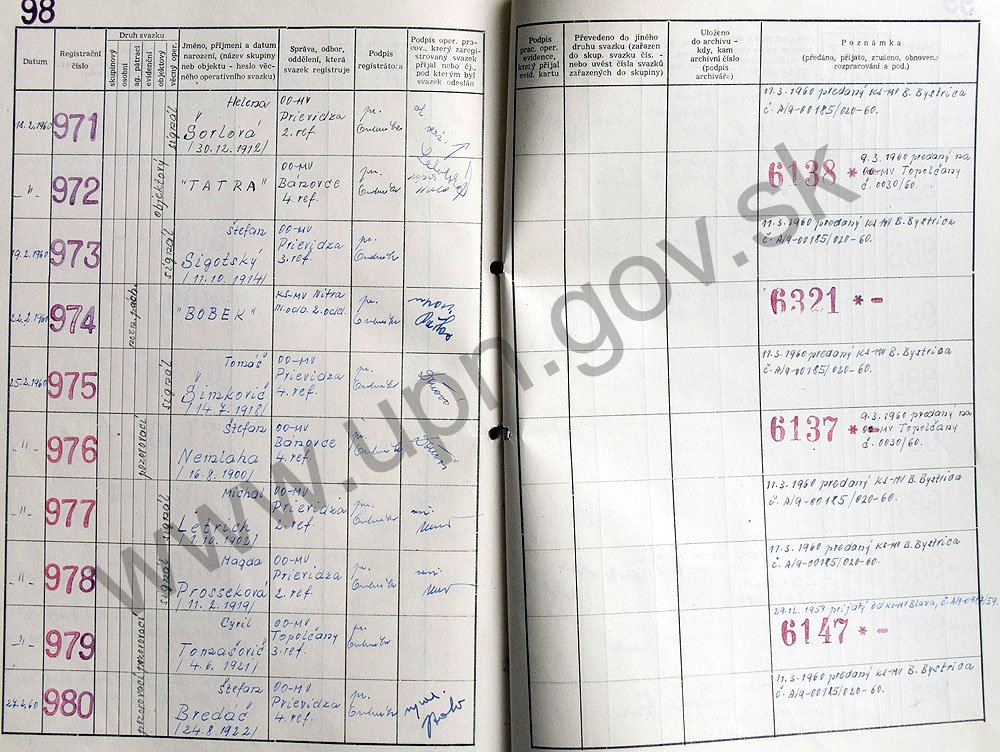 98
Datum
Registrační číslo
Druh svazku
skupinový
osobní
ag. pátrací
evidenční
objektový
věcný oper.
Jméno, příjmení a datum
narození, (název skupiny
neb objektu - heslo věc-
ného operativního svazku)
Správa, odbor,
oddělení, která
svazek registruje
Podpis
registrátora
Podpis oper. pra-
cov., který zaregi-
strovaný svazek
přijal nebo čj.,
pod kterým byl
svazek odeslán
Podpis
prac. oper.
evidence,
který přijal
evid. kartu
Převedeno do jiného
druhu svazku (zařazen
do skup. svazku čís. -
nebo uvést čísla svazků
zařazených do skupiny)
Uloženo
do archivu -
kdy, kam
archivní číslo
(podpis
archiváře)
Poznámka
(předáno, přijato, zrušeno, obnoveno
rozpracování a pod.)
971
signál
Helena
Šorlová
/30.12.1912/
OO-MV
Prievidza
2. ref.
pr.
11.3.1960 predaný KS-MV B. Bystrica
č. A/9-00185/020-60.
-"- 972
objektový
"TATRA"
OO-MV
Bánovce
4. ref.
pr.
6138 *
9.3.1960 predaný na
OO-MV Topoľčany
č. 0030/60.
19.2.1960 973
signál
Štefan
Sigotský
/11.10.1914/
OO-MV
Prievidza
3. ref.
pr.
11.3.1960 predaný KS-MV B. Bystrica
č. A/9-00185/020-60.
22.2.1960 974
"BOBEK"
KS-MV Nitra
III. odb. 2. odd.
pr.
6321 * -
25.2.1960 975
signál
Tomáš
Šimkovič
/14.7.1918/
OO-MV
Prievidza
4. ref.
pr.
11.3.1960 predaný KS-MV B. Bystrica
č. A/9-00185/020-60.
-"- 976
pozorovací
Štefan
Nemlaha
/16.8.1900/
OO-MV
Bánovce
4. ref.
pr.
6137 *
9.3.1960 predaný na
OO-MV Topoľčany
č. 0030/60.
-"- 977
signál
Michal
Letrich
/1.10.1902/
OO-MV
Prievidza
2. ref.
pr.
11.3.1960 predaný KS-MV B. Bystrica
č. A/9-00185/020-60.
-"- 978
signál
Magda
Prosseková
/11.2.1919/
OO-MV
Prievidza
2. ref.
pr.
11.3.1960 predaný KS-MV B. Bystrica
č. A/9-00185/020-60.
-"- 979
pozorovací
Cyril
Tomašovič
/4.6.1921/
OO-MV
Topoľčany
3. ref.
pr.
29.12.1959 prijatý od KS-MV Blava,
6147 * -
27.2.60 980
pozorovací
Štefan
Bredáč
/24.8.1922/
OO-MV
Prievidza
4. ref.
pr.
11.3.1960 predaný KS-MV B. Bystrica
č. A/9-00185/020-60.
www.upn.gov.sk